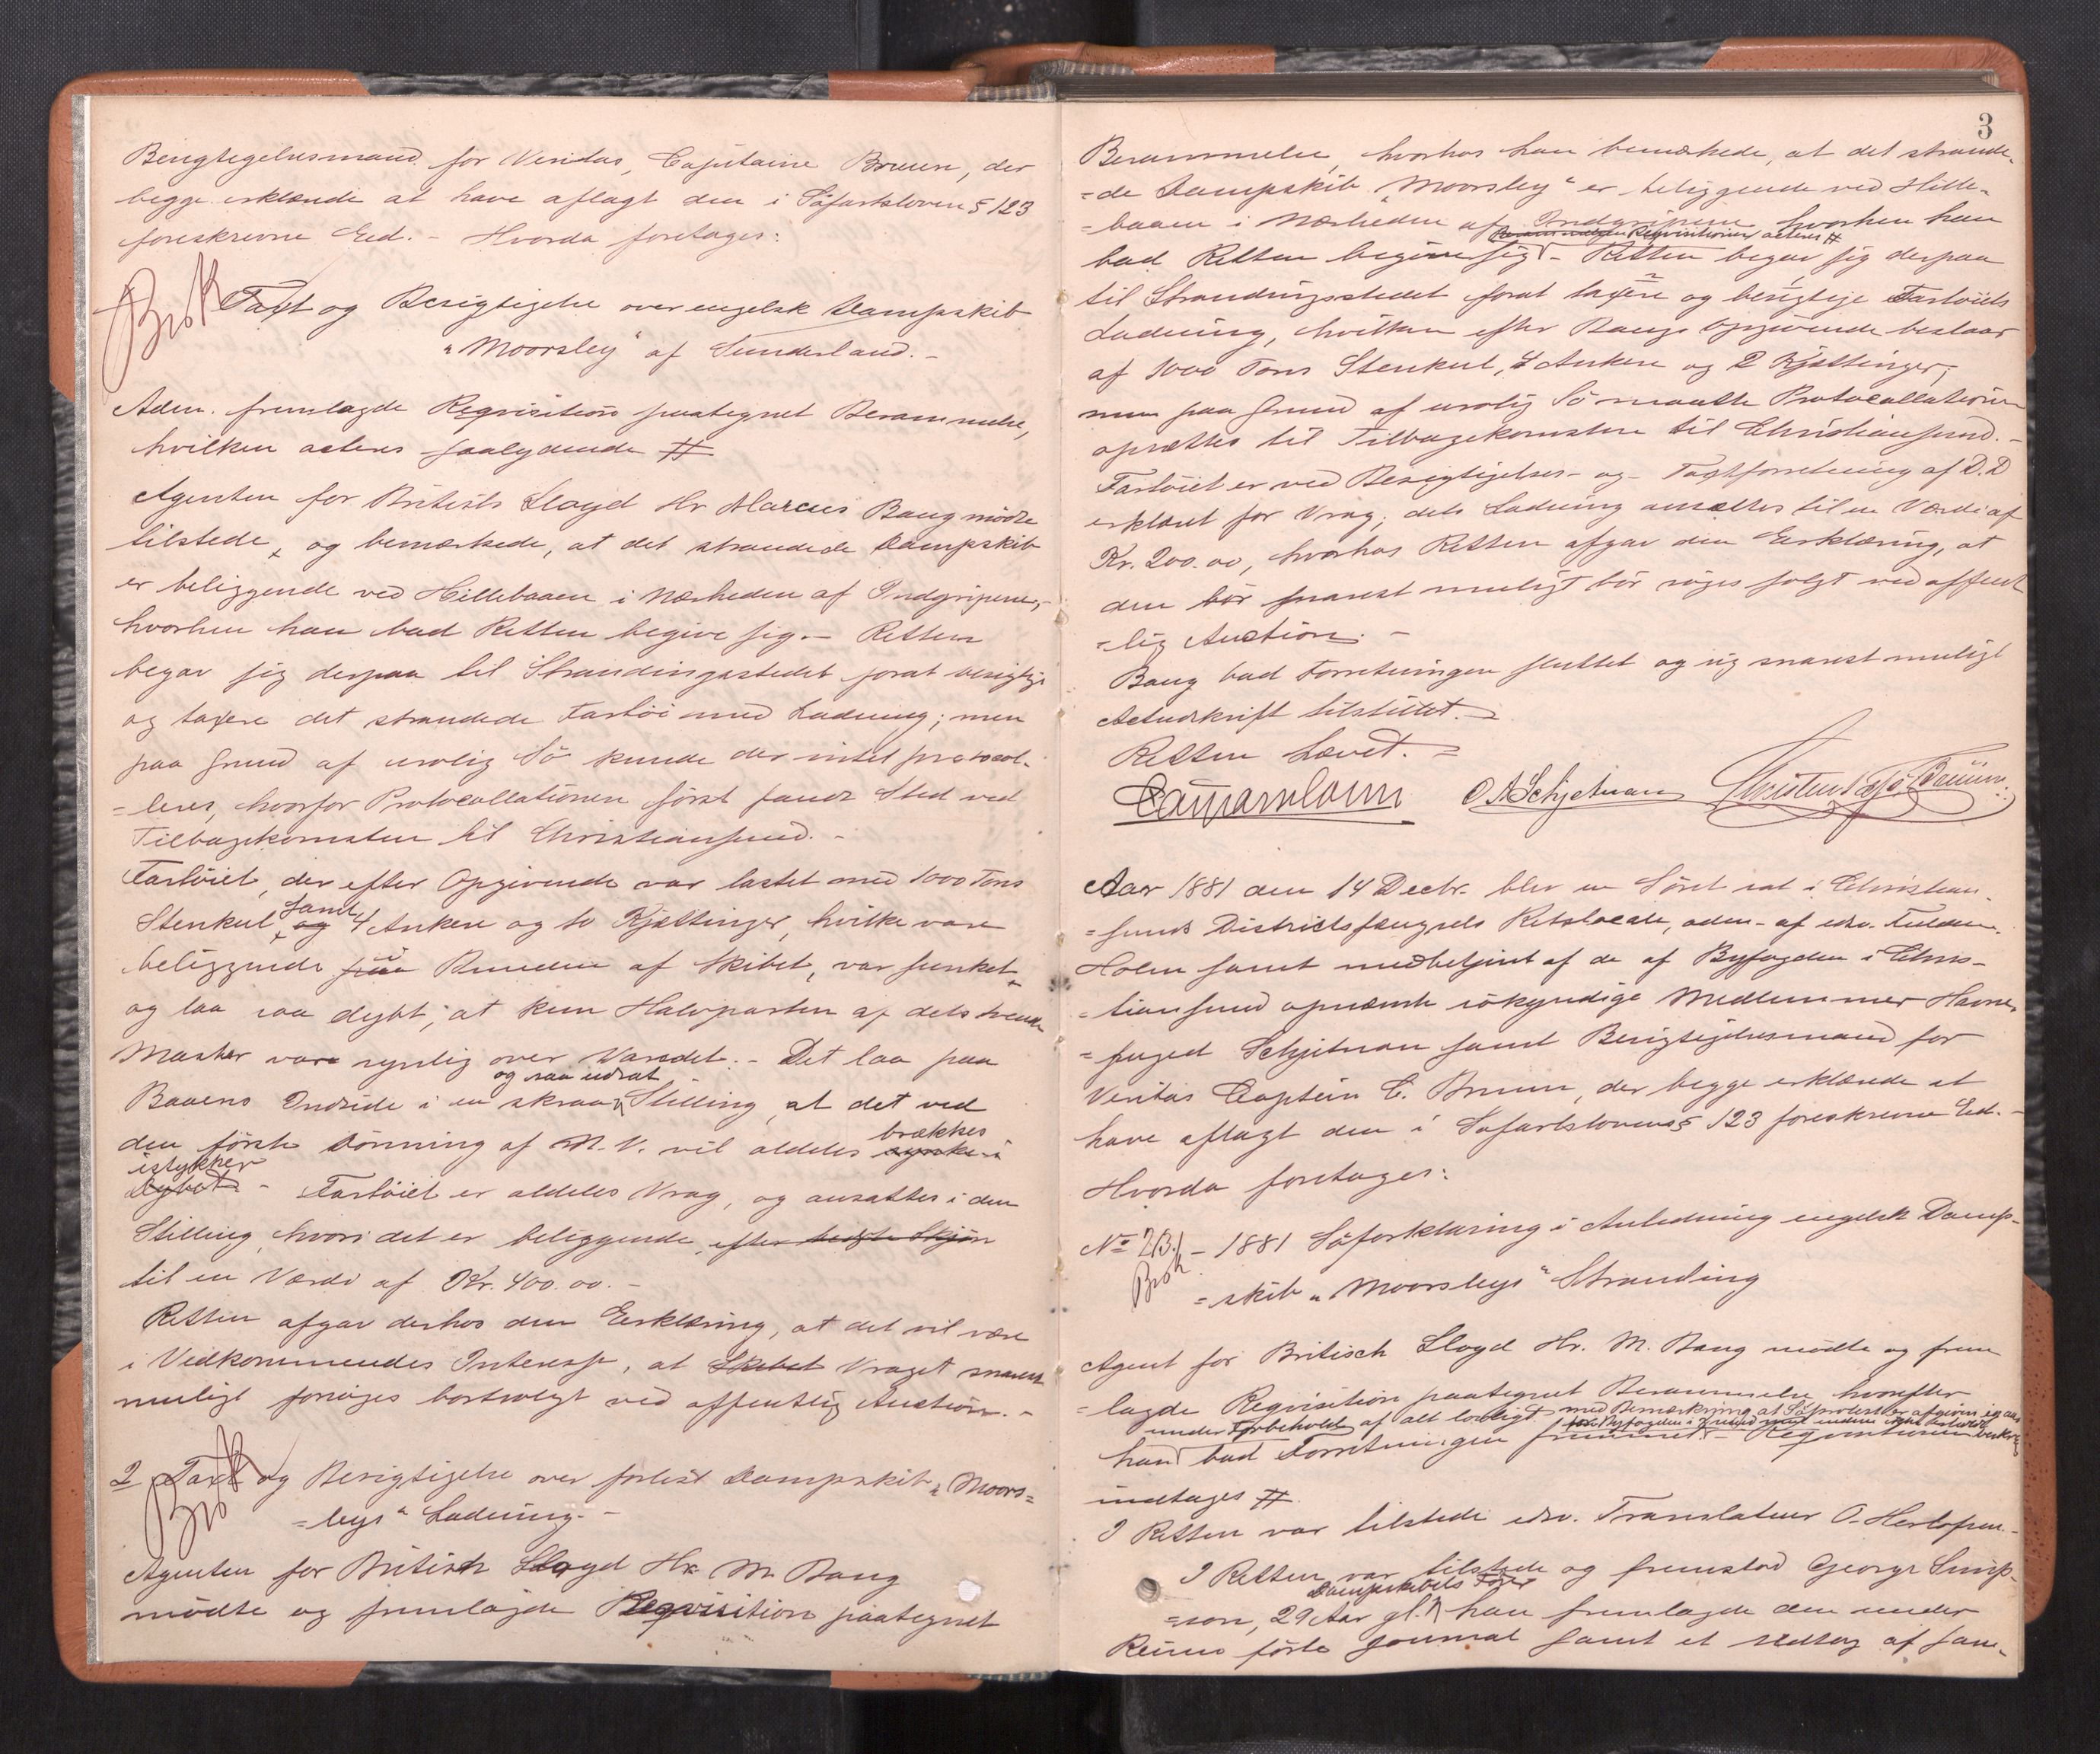 Besigtigelsesmand for Veritas, Capitaine Bruun, der
begge erklærede at have aflagt den i Söfartsloven § 123
foreskrevne Eed. – Hvorda foretages:
Brok
Taxt og Besigtigelse over engelsk Dampskib
"Moorsley" af Sunderland. –
Adm. fremlagde Reqvisition paategnet Berammelse,
hvilken acteres saalydende #
Agenten for British Lloyd Hr Marcus Bang mödte
tilstede, og bemærkede, at det strandede Dampskib
er beliggende ved Hillebaaen i Nærheden af Indgripene, –
hvorhen han bad Retten begive sig. – Retten
begav sig derpaa til Strandingsstedet forat besigtige
og taxere det strandede Fartöi med Ladning; men
paa Grund af urolig Sö kunde der intet protocol-
=leres, hvorfor Protocollationen först fandt Sted ved
Tilbagekomsten til Christianssund. –
Fartöiet, der efter Opgivende var lastet med 1000 Tons
Stenkul, og samt 4 Ankere og to Kjættinger, hvilke vare
beliggende paa i Bunden af Skibet, var sunket
og laa saa dybt, at kun Halvparten af dets tvende
Master vare synlig over Vandet. – Det laa paa
og saa udsat
Baaens Indside i en skraa Stilling, at det ved
brækkes
den förste Dönning af N.V. vil aldeles synke i
istykker
Dybet – Fartöiet er aldeles Vrag, og ansattes i den
Stilling, hvori det er beliggende, efter bedste Skjön
til en Værdi af Kr. 400.00. –
Retten afgav derhos den Erklæring, at det vil være
i Vedkommendes Interesse, at Skibet Vraget snarest
muligt forsöges bortsolgt ved offentlig Auction. –
Brok
2 Taxt og Besigtigelse over forlist Dampskib "Moors=
=leys" Ladning. –
Agenten for British Lloyd Hr M. Bang
mödte og fremlagde Reqvisition paategnet
3
Berammelse, hvorhos han bemærkede, at det strande-
=de Dampskib "Moorsley" er beliggende ved Hille-
=baaen i Nærheden af Indgripene hvorhen han
Reqvisitionen acteres #
bad Retten begive sig – Retten begav sig derpaa
til Strandingsstedet forat taxere og besigtige Fartöiets
Ladning, hvilken efter Bangs Opgivende bestaar
af 1000 Tons Stenkul, 4 Ankere og 2 Kjættinger;
men paa Grund af urolig Sö maatte Protocollationen
opsættes til Tilbagekomsten til Christianssund. –
Fartöiet er ved Besigtigelses- og Taxtforretning af D.D
erklæret for Vrag; dets Ladning ansættes til en Værdi af
Kr. 200.00, hvorhos Retten afgav den Erklæring, at
den bör snarest muligt bör söges solgt ved offent
=lig Auction. –
Bang bad Forretningen sluttet og sig snarest muligt
Actudskrift tilstillet. –
Retten hævet. =
O A Schjetnan
Aar 1881 den 14 Decbr. blev en Söret sat i Christian
=sunds Districtsfængsels Retslocale, adm. af edsv. Fuldm.
Holm samt medbetjent af de af Byfogden i Chris-
=tianssund opnævnte sökyndige Medlemmer Havne
=foged Schjetnan samt Besigtigelsesmand for
Veritas Captein C. Bruun, der begge erklærede at
have aflagt den i Söfartslovens § 123 foreskrevne Eed. –
Hvorda foretages:
No 2B. – 1881 Söforklaring i Anledning engelsk Damp-
Brok
=skib "Moorsleys" Stranding
Agent for Britisch Lloyd Hr. M. Bang mödte og frem
=lagde Reqvisition paategnet Berammelse, hvorefter
under Forbehold af alt lovligt med Bemærkning at Söprotest er afgiven
han bad Forretningen fremmet – Reqvisitionen
indtages #
I Retten var tilstede edsv. Translateur O. Herlofsen –
I Retten var tilstede og fremstod George Simp-
Dampskibets Förer
=son, 29 Aar gl. han fremlagde den under
Reisen förte Journal samt et Uddrag af sam-